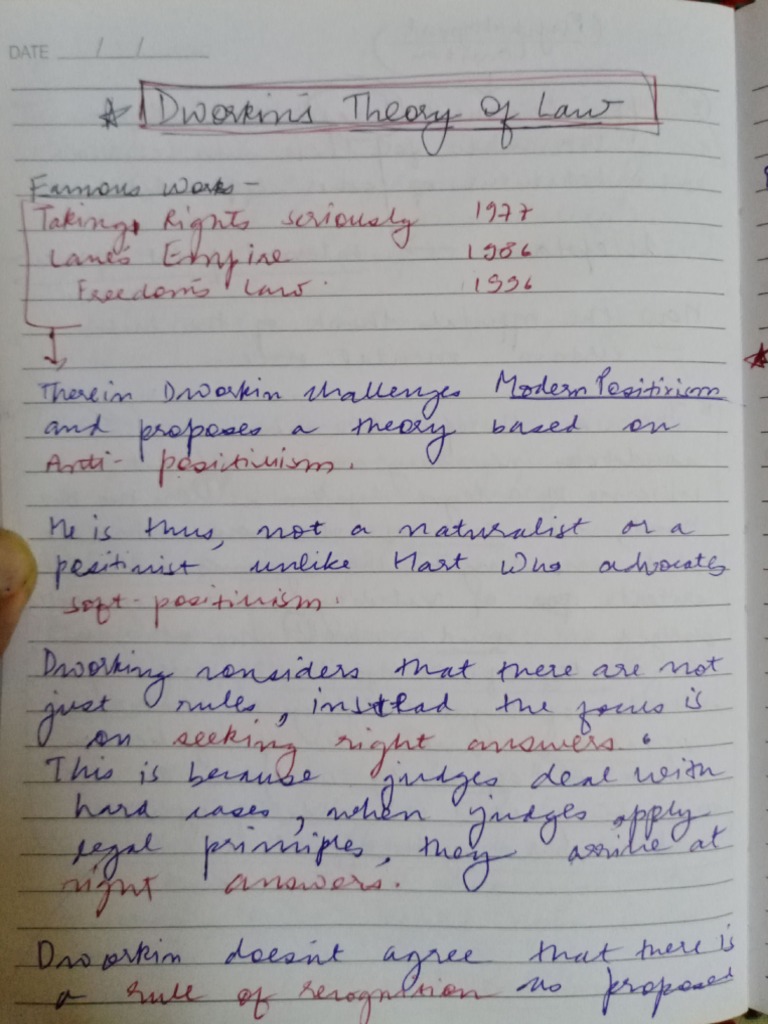 DATE / /
Dworkin's Theory Of Law
Famous works -
Taking Rights seriously 1977
Law's Empire 1986
Freedom's Law 1996
Therein Dworkin challenges Modern Positivism
and proposes a theory based on
Anti-positivism.
He is thus, not a naturalist or a
positivist unlike Hart who advocates
soft-positivism.
Dworking considers that there are not
just rules, instead the focus is
on seeking right answers.
This is because judges deal with
hard cases, when judges apply
legal principles, they arrive at
right answers.
Dworkin doesn't agree that there is
a rule of recognition as proposed